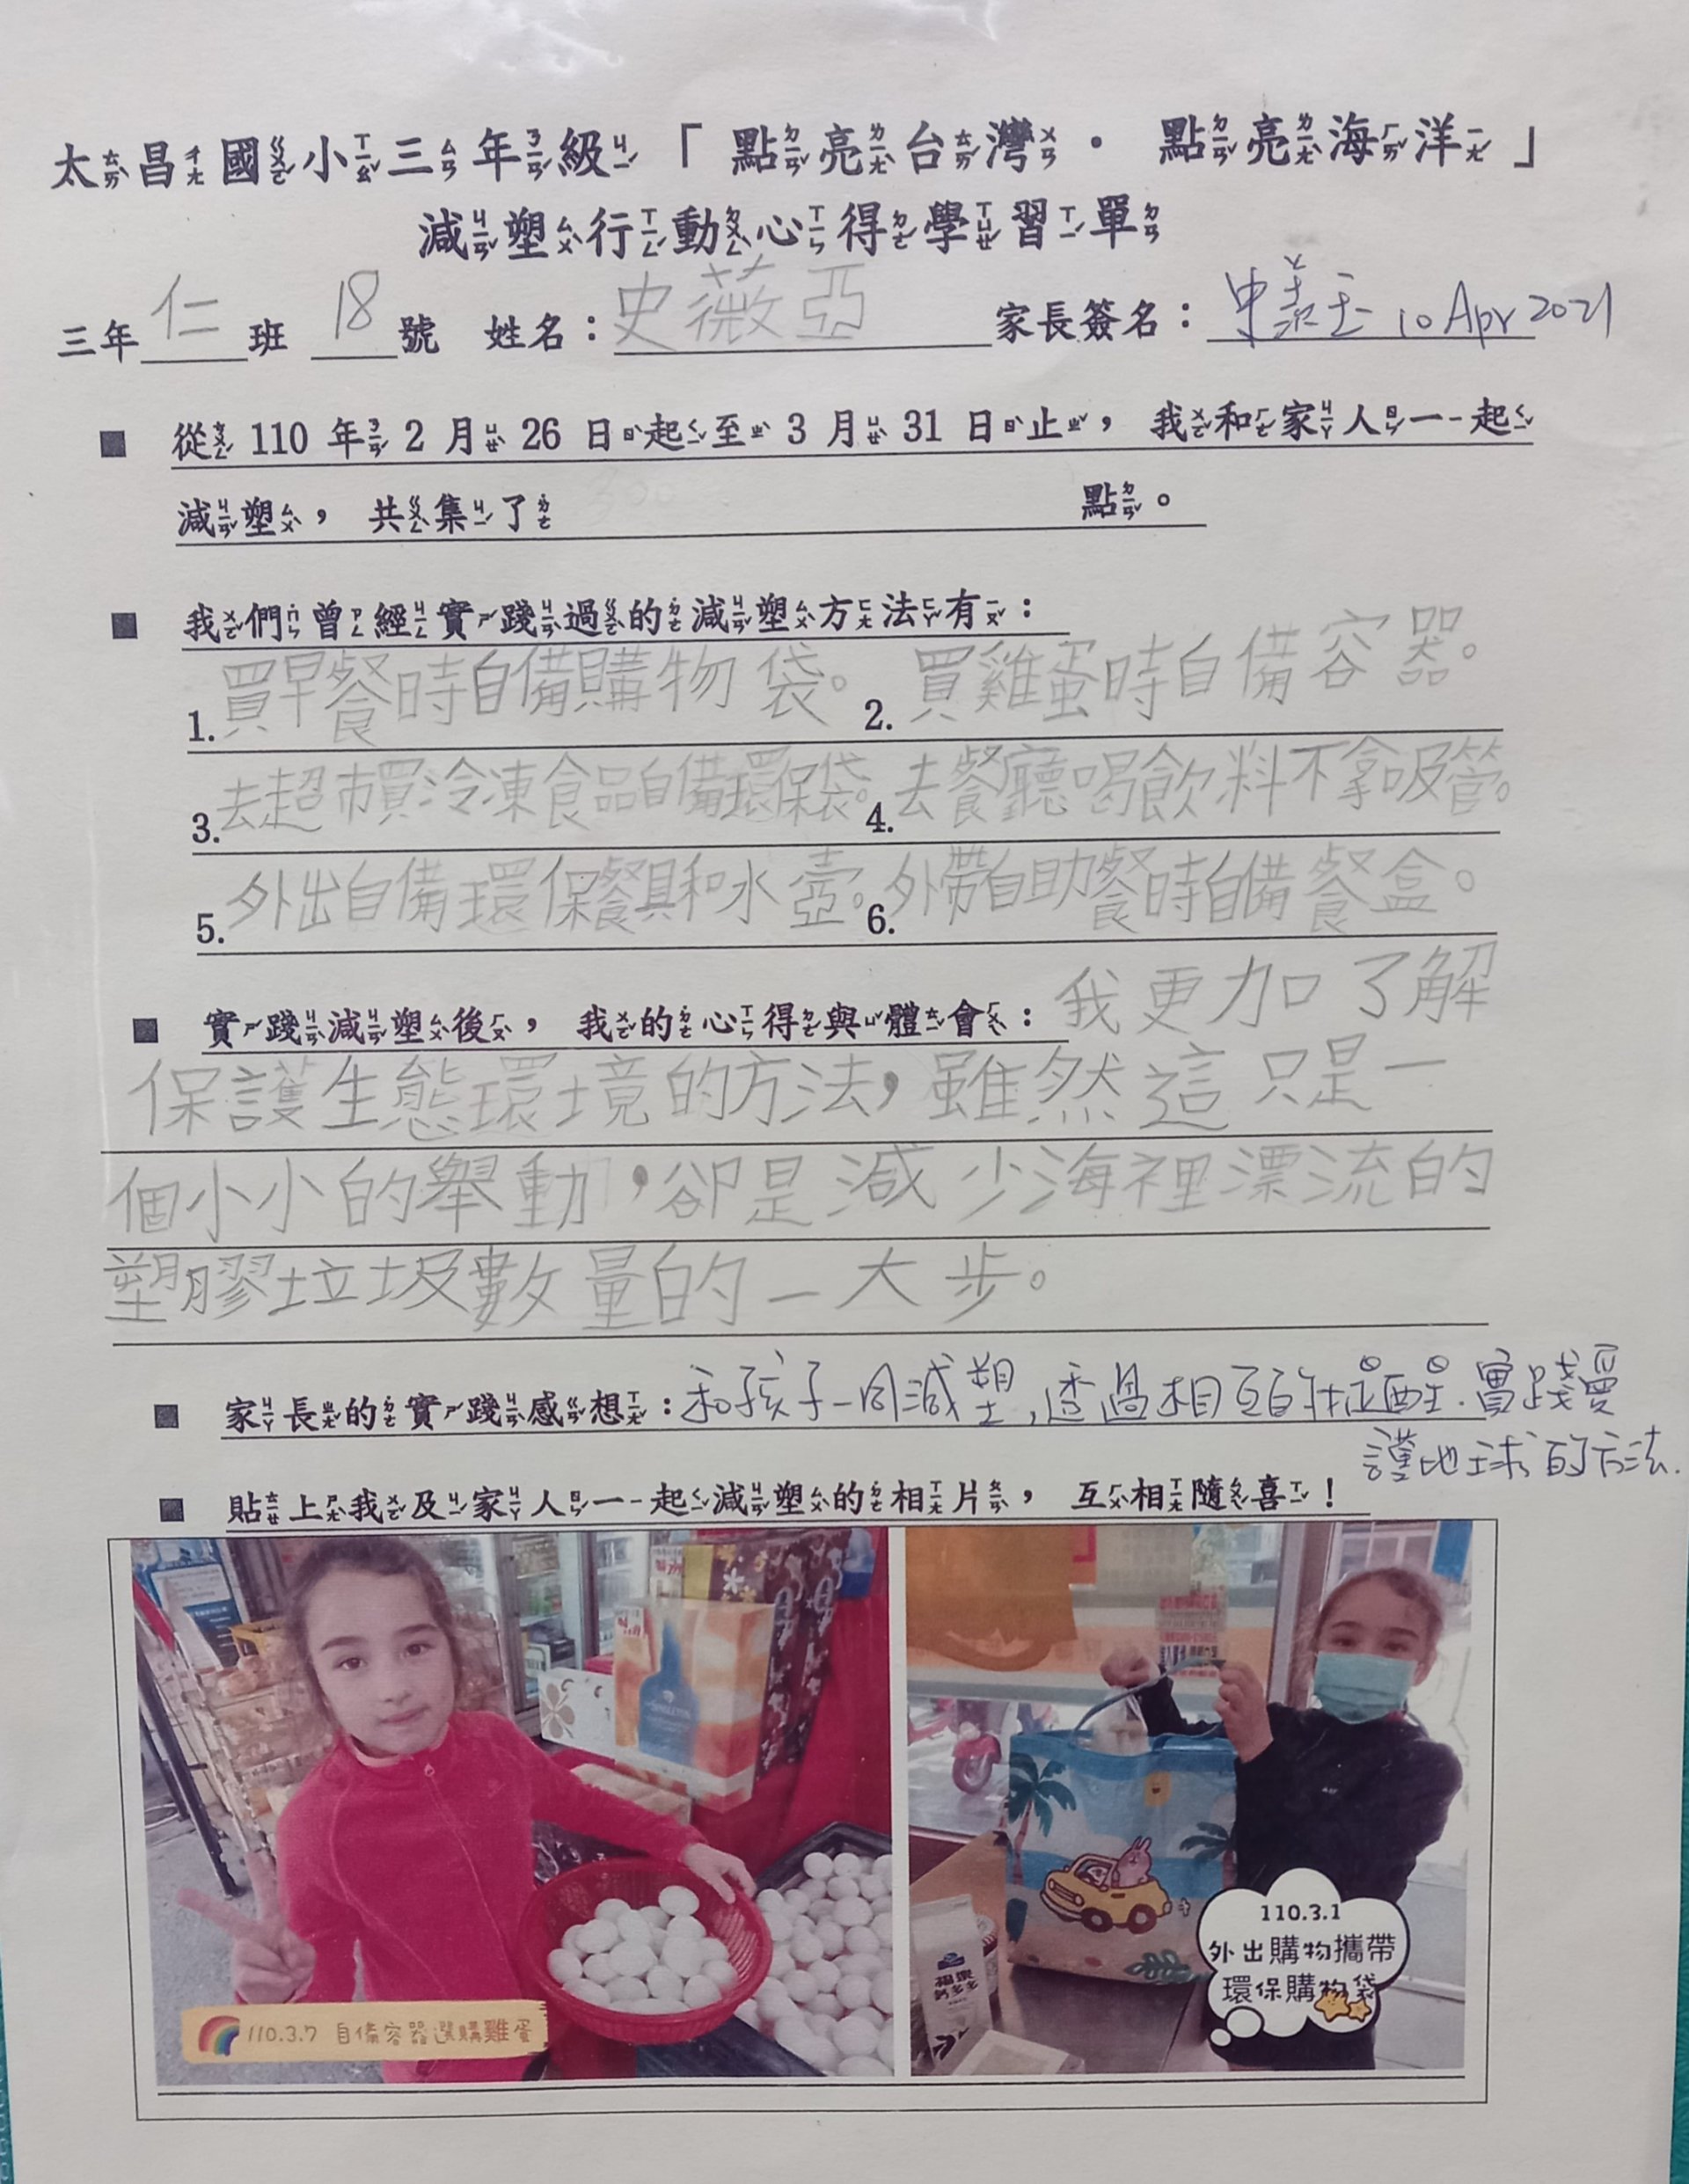 太昌國小三年級「點亮台灣・點亮海洋」
減塑行動心得學習單
三年仁班 18 號 姓名：史薇亞 家長簽名： 10 Apr 2021
■ 從 110 年 2 月 26 日起至 3 月 31 日止，我和家人一起
減塑，共集了 點。
■ 我們曾經實踐過的減塑方法有：
1. 買早餐時自備購物袋。 2. 買雞蛋時自備容器。
3. 去超市買冷凍食品自備環保袋。 4. 去餐廳喝飲料不拿吸管。
5. 外出自備環保餐具和水壺。 6. 外帶自助餐時自備餐盒。
■ 實踐減塑後，我的心得與體會：我更加了解
保護生態環境的方法，雖然這只是一
個小小的舉動，卻是減少海裡漂流的
塑膠垃圾數量的一大步。
■ 家長的實踐感想：和孩子一同減塑，透過相互的提醒.實踐愛
護地球的方法.
■ 貼上我及家人一起減塑的相片，互相隨喜！
110.3.7 自備容器選購雞蛋
110.3.1
外出購物攜帶
環保購物袋